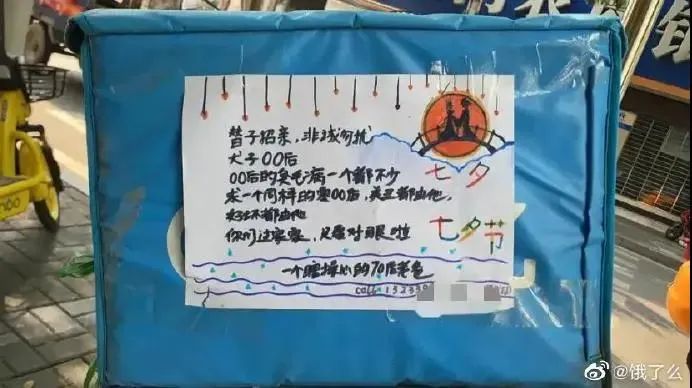 替子招亲，非诚勿扰
犬子00后
00后的臭毛病一个都不少
求一个同样的零00后，美丑都由他
好坏都由他
你们过家家，只需对眼啦
一个瞎操心的70后老爸
call: 13233
七夕
七夕节
@饿了么